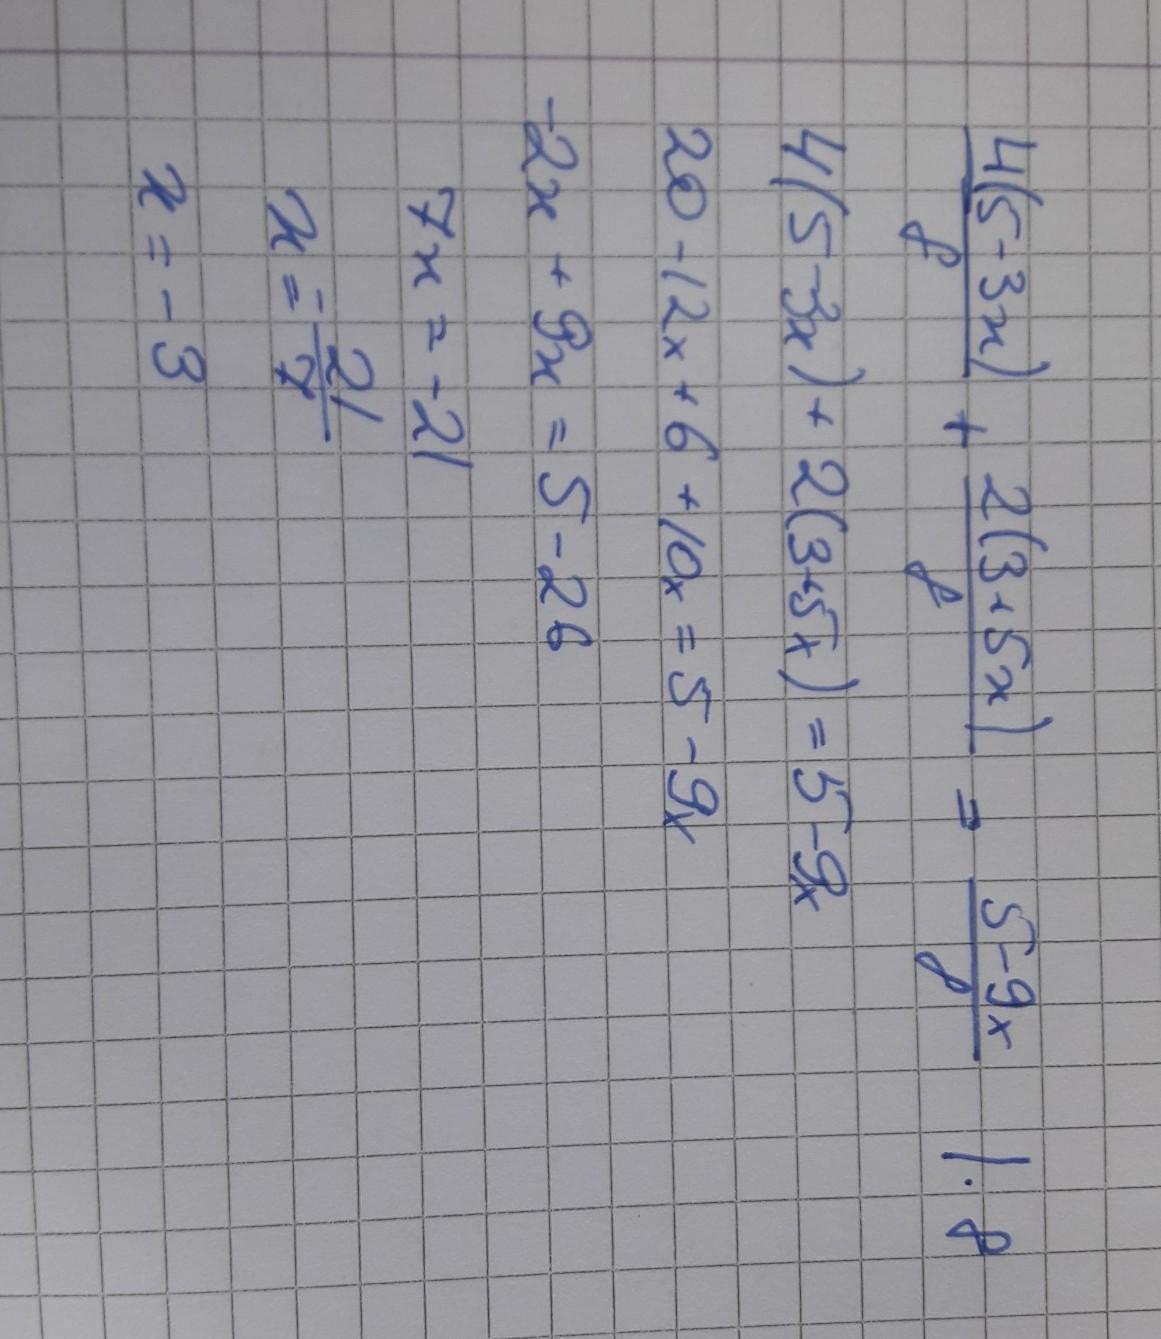 4(5-3x)/8 + 2(3+5x)/8 = 5-9x/8 |·8
4(5-3x)+2(3+5x)=5-9x
20-12x+6+10x=5-9x
-2x+9x=5-26
7x=-21
x=-21/7
x=-3